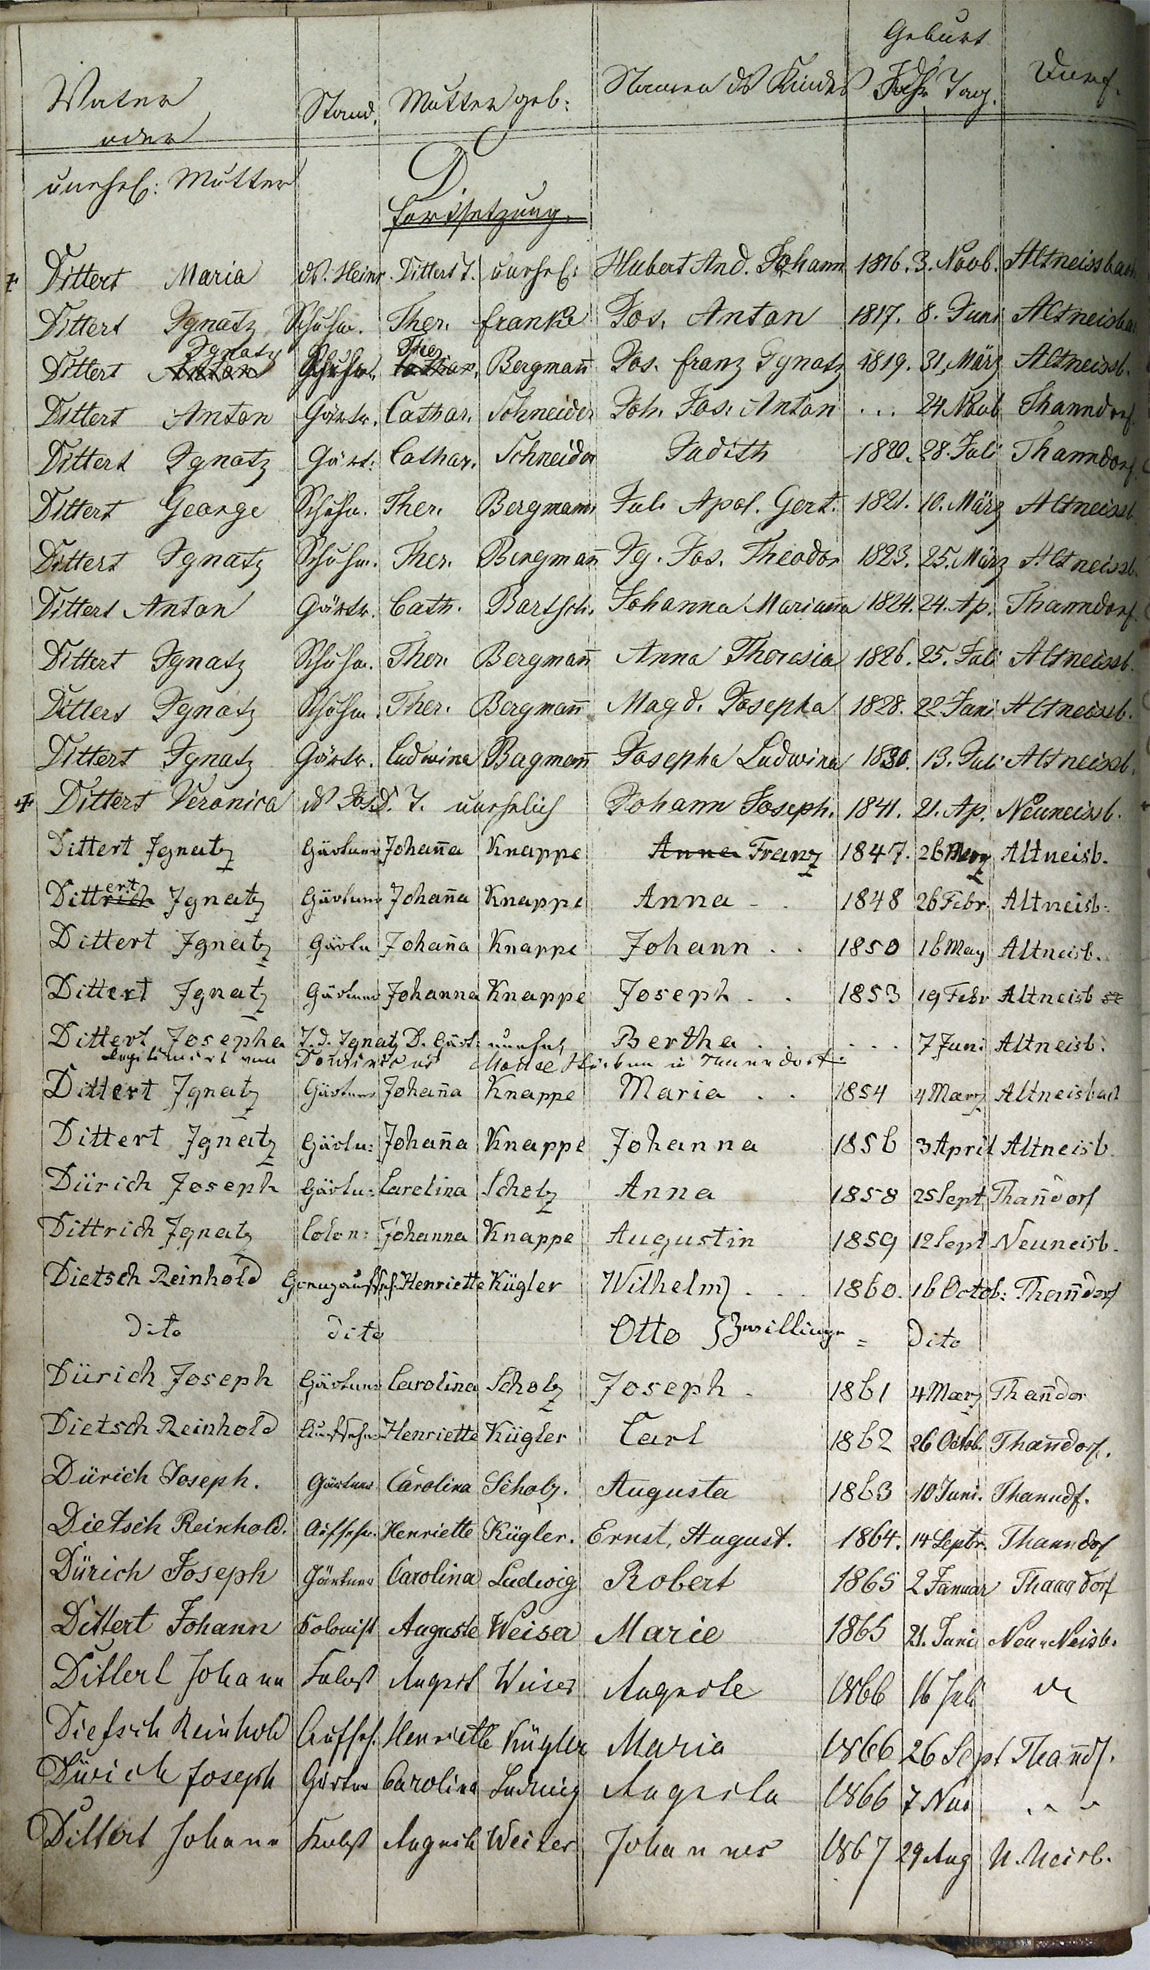 Geburt
Vater Stand. Mutter geb: Namen ds Kindes Jahr Tag. Dorf.
oder
unehel: Mutter D.
Fortsetzung.
Dittert Maria ds. Heinr. Dittert T. unehel: Hubert And. Johann 1816. 3. Novb. Altneissbach
Dittert Ignatz Schuhm. Ther. Franke Jos. Anton 1817. 8. Juni Altneisba
Ignatz Ther
Dittert Anton Schuhm. Cathar. Bergmañ Jos. Franz Ignatz 1819. 31, März Altneissb.
Dittert Anton Gärtn. Cathar. Schneider Joh. Jos. Anton ... 24 Novb Thanndorf.
Dittert Ignatz Gärt: Cathar. Schneider Judith 1820. 28. Juli Thanndorf.
Dittert George Schuhm. Ther. Bergmann Jul. Apol. Gert. 1821. 10. März Altneissb
Dittert Ignatz Schuhm. Ther. Bergman Ig. Jos. Theodor 1823. 25. März Altneissb.
Dittert Anton Gärtn. Cath. Bartsch. Johanna Mariaña 1824. 24. Ap. Thanndorf.
Dittert Ignatz Schuhm. Ther. Bergmañ Anna Theresia 1826. 25. Juli Altneissb.
Dittert Ignatz Schuhm. Ther. Bergmañ Magd. Josepha 1828. 22 Juni Altneissb.
Dittert Ignatz Gärtn. Ludwina Bagmañ Josepha Ludwina 1830. 13. Juli Altneissb.
Dittert Veronica ds Jos. D. T. unehelich Johann Joseph. 1841. 21. Ap. Neuneissb.
Dittert Ignatz Gärtner Johaña Knappe Anna Franz 1847. 26 Merz Altneisb.
ert
Dittrich Ignatz Gärtner Johaña Knappe Anna - . 1848 26 Febr. Altneisb:
Dittert Ignatz Gärtn Johaña Knappe Johann . . 1850 16 May Altneisb.
Dittert Ignatz Gärtner Johanna Knappe Joseph . . 1853 19 Febr Altneisb
Dittert Josepha T. d. Ignatz D. Gärt: unehel Bertha . . . . . 7 Juni Altneisb.
legitimirt von in Thanndorf
Dittert Ignatz Gärtner Johaña Knappe Maria . . 1854 4 Marz Altneisbach
Dittert Ignatz Gärtn: Johaña Knappe Johanna 1856 3 April Altneisb.
Dürich Joseph Gärtn: Carolina Scholz Anna 1858 25 Sept Thañdorf
Dittrich Ignatz Colon: Johanna Knappe Augustin 1859 12 Sept Neuneisb.
Dietsch Reinhold Grenzaufseh. Henriette Kügler Wilhelm . . . 1860. 16 Octob: Thañdorf
dito dito Otto Zwillinge = dito
Dürich Joseph Gärtner Carolina Scholz Joseph - 1861 4 Marz Thañdor
Dietsch Reinhold Aufseher Henriette Kügler Carl 1862 26 Octob. Thañdorf.
Dürich Joseph. Gärtner Carolina Scholz. Augusta 1863 10 Juni. Thanndf.
Dietsch Reinhold. Aufseher Henriette Kügler. Ernst, August. 1864. 14 Septbr. Thanndof
Dürich Joseph Gärtner Carolina Ludwig Robert 1865 2 Januar Thanndorf
Dittert Johann Kolonist Auguste Weiser Marie 1865 21. Juni Neu-Neisb.
Dittert Johann August Weiser Auguste 1866 16 Juli
Dietsch Reinhold Aufseh. Henriette Kügler Maria 1866 26 Sept Thañdf.
Dürich Joseph Gärtner Carolina Ludwig Augusta 1866 7 Nov " "
Dittert Johann Auguste Weiser Johannes 1867 29 Aug N. Neisb.